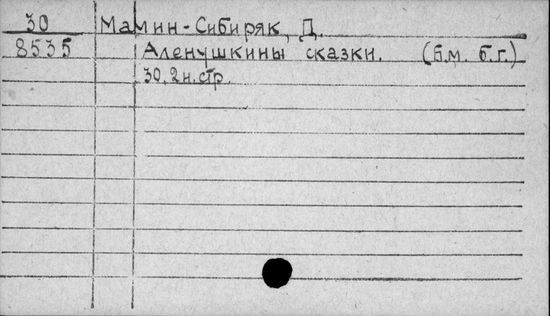 30 Мамин-Сибиряк, Д.
8535 Аленушкины сказки. (б.м. б.г.)
30, 2 н. стр.